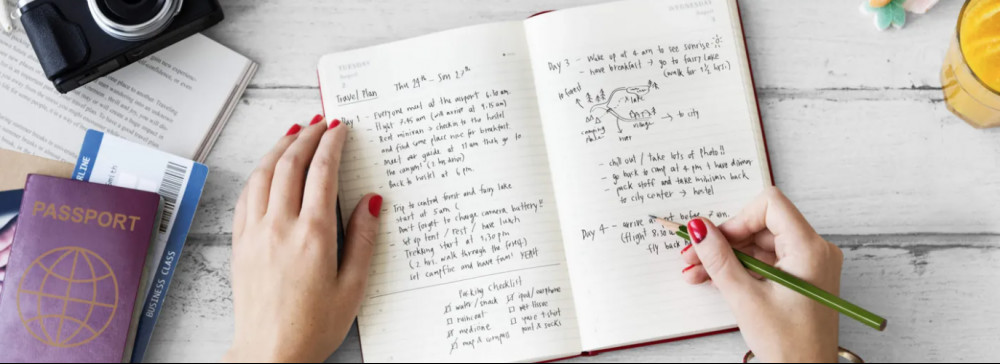 TUESDAY
August
Travel Plan
Thu 24th - Sun 27th
Day 1 - Everyone meet at the airport 6.10 am
- flight 7.45 am (will arrive at 9.15 am)
- Rent minivan > checkin to the hostel
and find some place nice for breakfast
- Meet our guide at 11 am then go to
the canyon! (2 hrs drive)
- Back to hostel at 6 pm
- Trip to central forest and fairy lake
start at 5 am (
- Don't forget to charge camera battery!!
- Set up tent / rest / have lunch
- Trekking start at 3.30 pm
(2 hrs. walk through the forest)
- Set campfire and have fun! YEAH
Packing Checklist
water / snack
raincoat
medicine
map & compass
ipod / earphone
wet tissue
spare t-shirt
pant & socks
WEDNESDAY
August
Day 3 - Wake up at 4 am to see sunrise
- have breakfast → go to fairy lake
(walk for 1½ hrs.)
to forest
lake
camping
place
river
village
→ to city
- chill out / take lots of photo!!
- go back to camp at 4 pm & have dinner
- pack stuff and take minivan back
to city center → hostel
Day 4 - arrive before 7 am
(flight 8.30
fly back
PASSPORT
BUSINESS CLASS